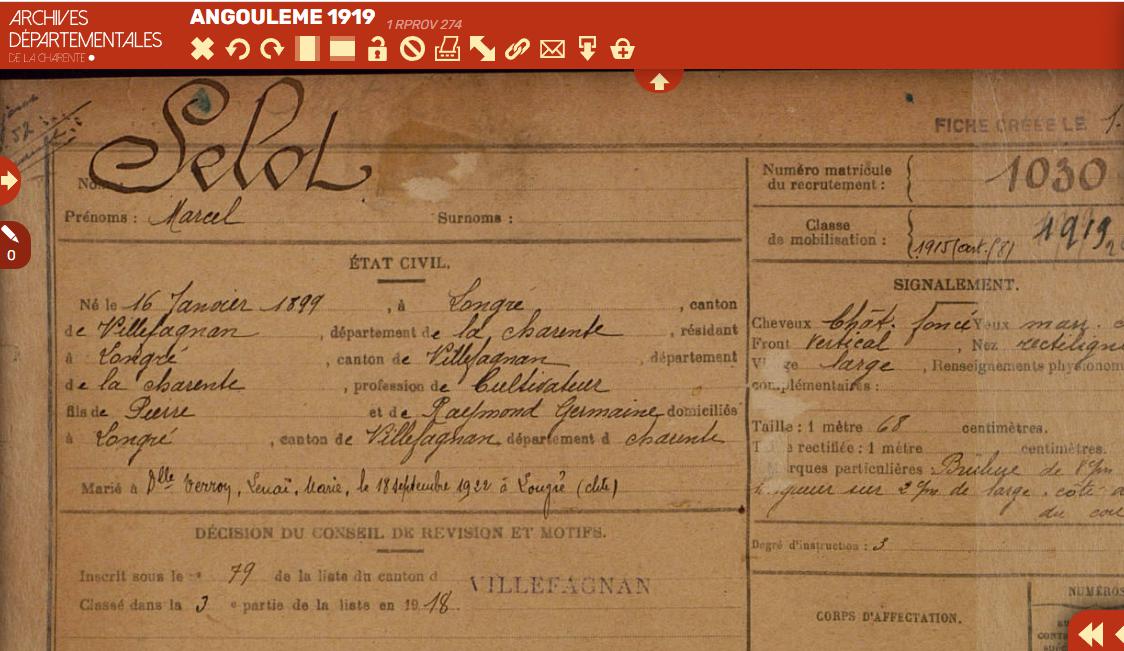 ARCHIVES
DÉPARTEMENTALES
DE LA CHARENTE
ANGOULEME 1919 1 RPROV 274
0
FICHE CRÉÉE LE 1.
52
Selot
Nom :
Prénoms : Marcel Surnoms :
ÉTAT CIVIL.
Né le 16 Janvier 1899, à Longré, canton
de Villefagnan, département de la charente, résidant
à Longré, canton de Villefagnan, département
de la charente, profession de Cultivateur
fils de Pierre et de Raymond Germaine domiciliés
à Longré, canton de Villefagnan, département d charente
Marié à Dlle Verroy, Marie, le 18 septembre 1922 à Longré (chte)
DÉCISION DU CONSEIL DE REVISION ET MOTIFS.
Inscrit sous le n° 79 de la liste du canton d VILLEFAGNAN
Classé dans la 3 e partie de la liste en 1918.
Numéro matricule
du recrutement : 1030
Classe
de mobilisation : 1919
1915 (art. 58)
SIGNALEMENT.
Cheveux Chât. foncé Yeux mar.
Front Vertical, Nez rectilign
Visage large, Renseignements physionom
complémentaires :
Taille : 1 mètre 68 centimètres.
Taille rectifiée : 1 mètre centimètres.
Marques particulières : Brûlure de 8 cm
longueur sur 2 cm de large. côté
du cou
Degré d'instruction : 3
CORPS D'AFFECTATION.
NUMÉROS